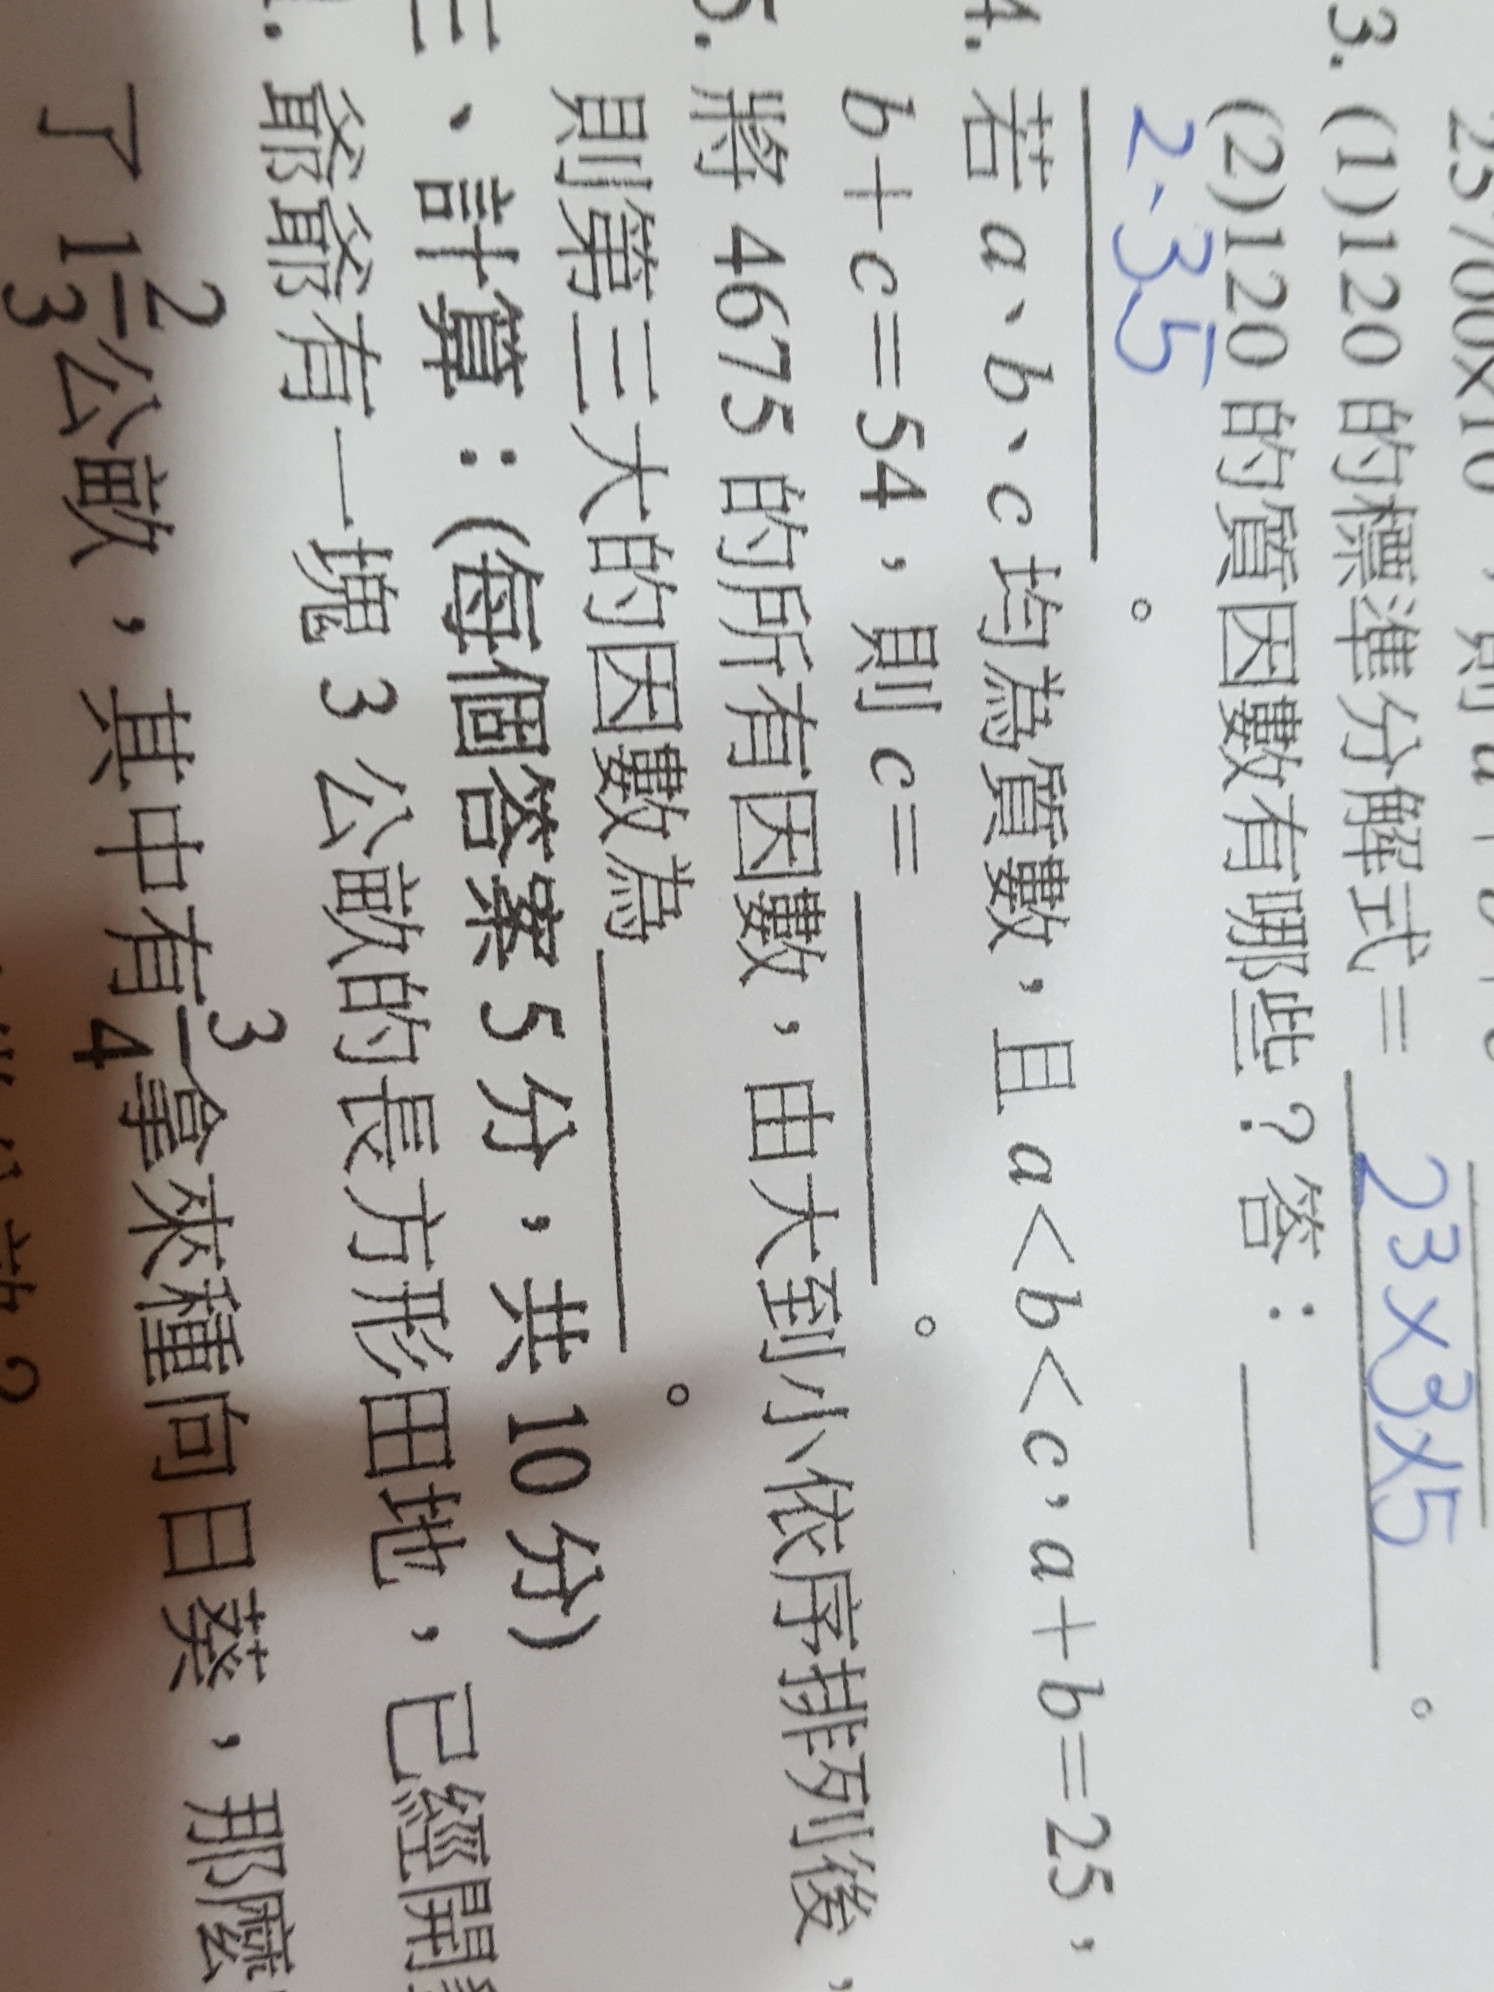 3. (1)120 的標準分解式= 2³×3×5 。
(2)120 的質因數有哪些？答：
2、3、5 。
4. 若 a、b、c 均為質數，且 a<b<c，a+b=25，
b+c=54，則 c= 。
5. 將 4675 的所有因數，由大到小依序排列後，
則第三大的因數為 。
三、計算：(每個答案 5 分，共 10 分)
. 爺爺有一塊 3 公畝的長方形田地，已經開
了 1 2/3 公畝，其中有 3/4 拿來種向日葵，那麼